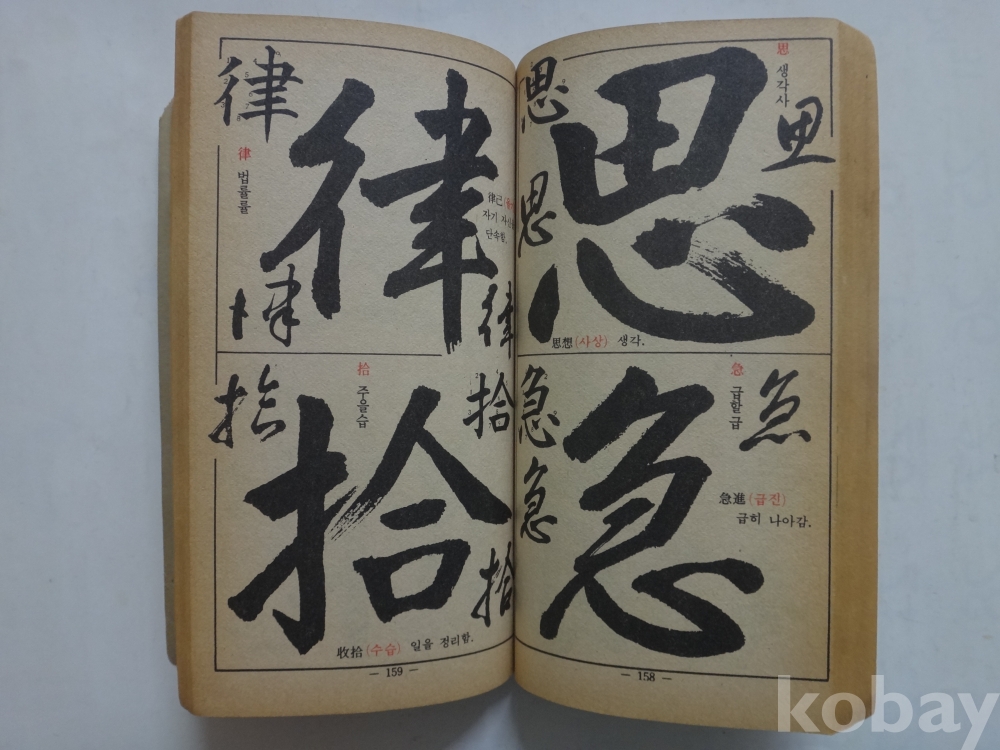 思
생각사
思
思
思
思
思想(사상) 생각.
急
급할급
急
急
急
急
急進(급진)
급히 나아감.
— 158 —
律
律
律
법률률
律己
자기
단속함.
律
律
拾
주을습
拾
拾
拾
拾
收拾(수습) 일을 정리함.
— 159 —
kobay